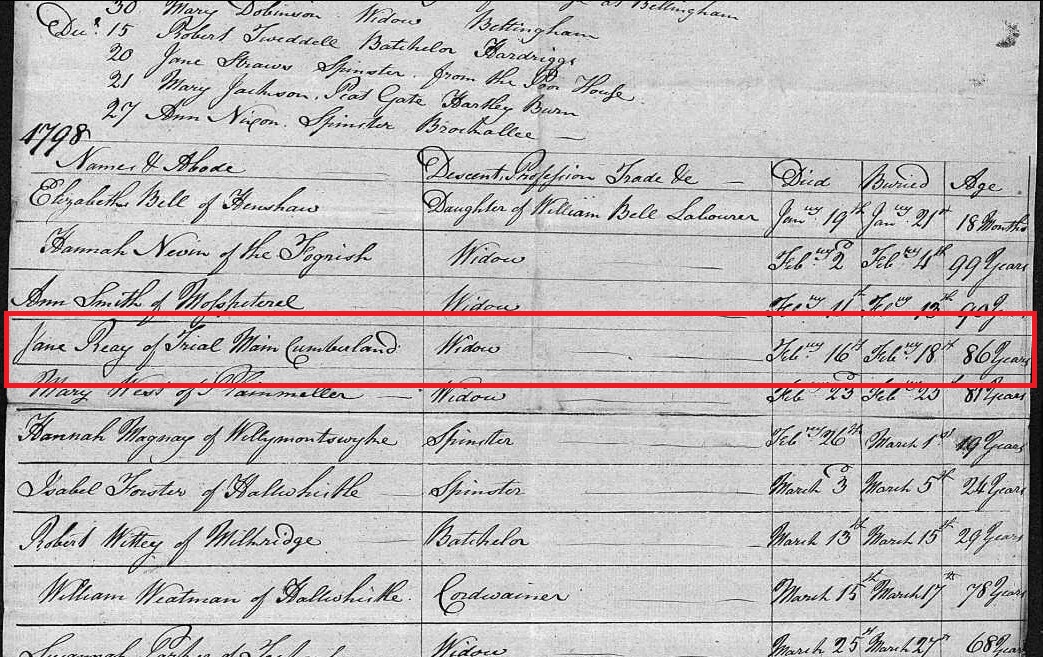 30 Mary Dobinson Widow Bellingham
Decr. 15 Robert Tweddell Batchelor Hardriggs
20 Jane Straws Spinster from the Poor House
21 Mary Jackson, Peat Gate Hartley Burn
27 Ann Nixon Spinster
1798
Names & Abode Descent, Profession Trade &c Died Buried Age
Elizabeth Bell of Henshaw Daughter of William Bell Labourer Janry 19th Janry 21st 18 Months
Hannah Nevin of the Widow Febry 2d Febry 4th 99 Years
Ann Smith of Mosspeterel Widow Febry 11th Febry 13th
Jane Reay of Trial Main Cumberland Widow Febry 16th Febry 18th 86 Years
Mary of Plainmeller Widow Febry 23d Febry 25 81 Years
Hannah Magnay of Willymontswyke Spinster Febry 26th March 1st 19 Years
Isabel Forster of Haltwhistle Spinster March 3d March 5th 24 Years
Robert Wittey of Batchelor March 13th March 15th 29 Years
William Weatman of Haltwhistle Cordwainer March 15th March 17th 78 Years
Susannah of Widow March 25th March 27th 68 Years